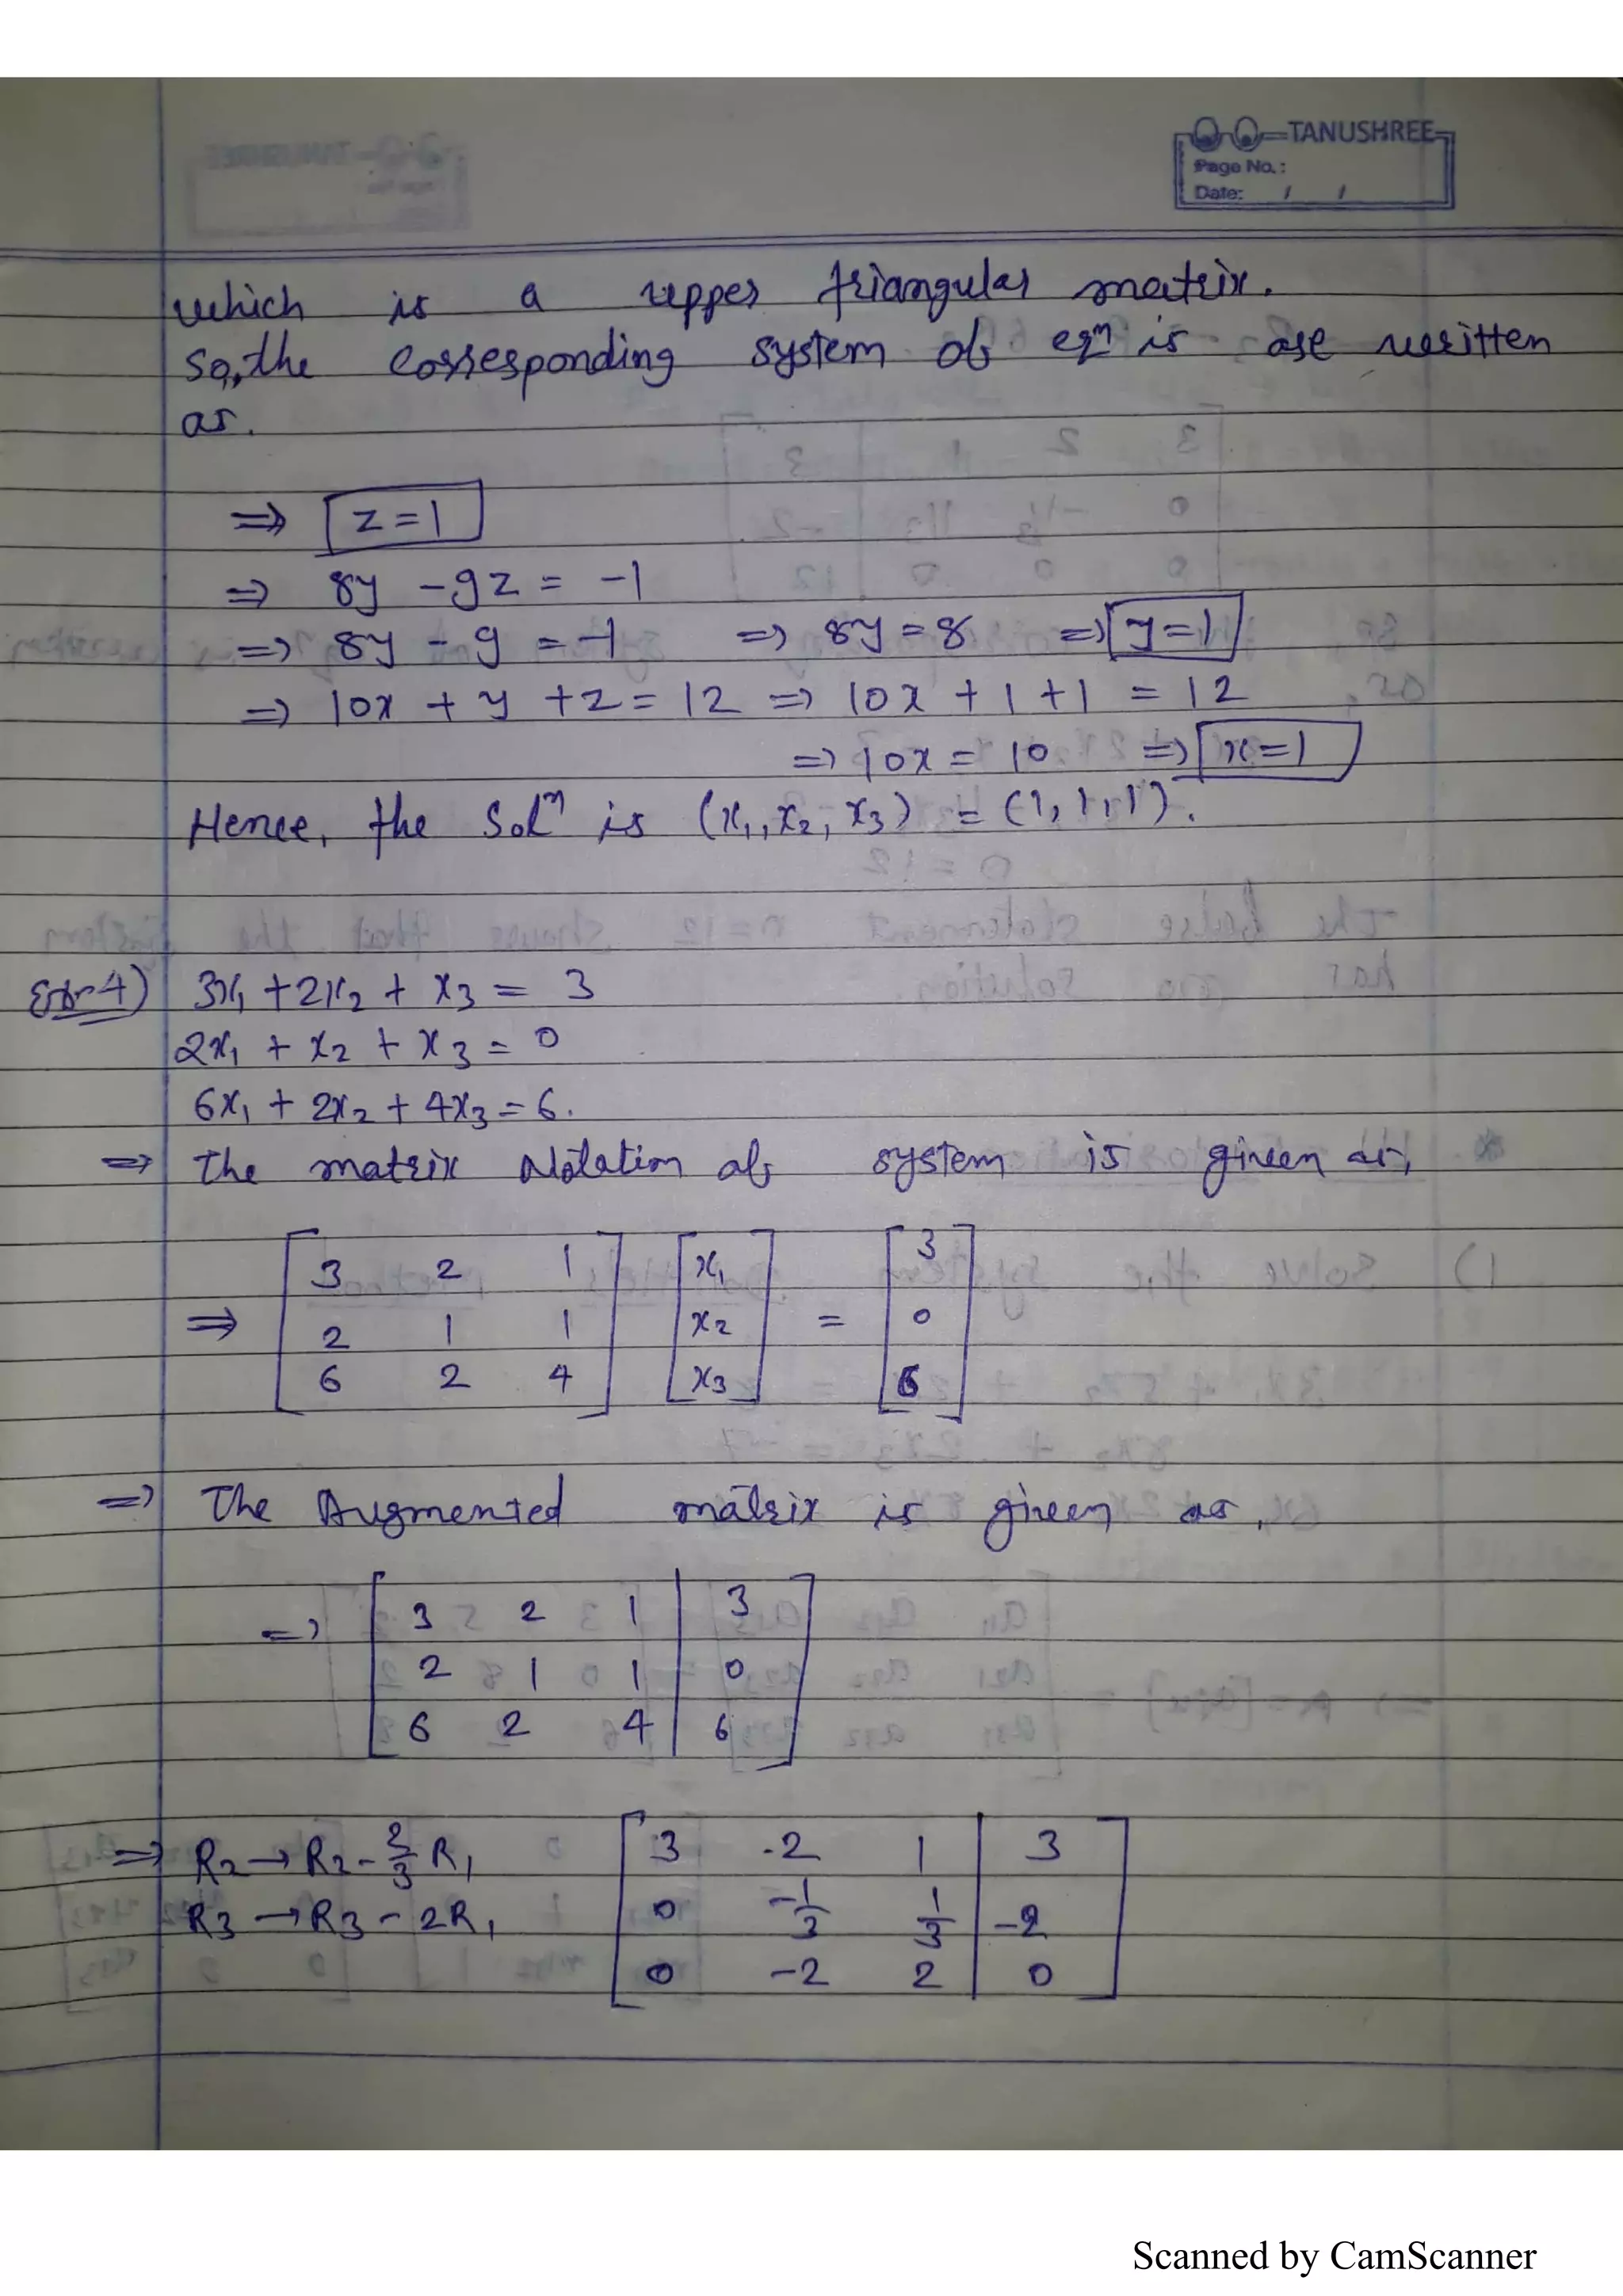 TANUSHREE
Page No.:
Date: / /
which is a upper triangular matrix.
So, the corresponding system of eqn is are written
as.
⇒ z=1
⇒ 8y - 9z = -1
⇒ 8y - 9 = -1 ⇒ 8y = 8 ⇒ y=1
⇒ 10x + y + z = 12 ⇒ 10x + 1 + 1 = 12
⇒ 10x = 10 ⇒ x=1
Hence, the Solⁿ is (x₁, x₂, x₃) = (1, 1, 1).
Ex-4) 3x₁ + 2x₂ + x₃ = 3
2x₁ + x₂ + x₃ = 0
6x₁ + 2x₂ + 4x₃ = 6.
⇒ The matrix Notation of system is given as,
3 2 1 x₁ 3
⇒ 2 1 1 x₂ = 0
6 2 4 x₃ 6
⇒ The Augmented matrix is given as,
⇒ 3 2 1 | 3
2 1 1 | 0
6 2 4 | 6
⇒ R₂→R₂-2/3 R₁ 3 2 1 | 3
R₃→R₃-2R₁ 0 -1/3 1/3 | -2
0 -2 2 | 0
Scanned by CamScanner